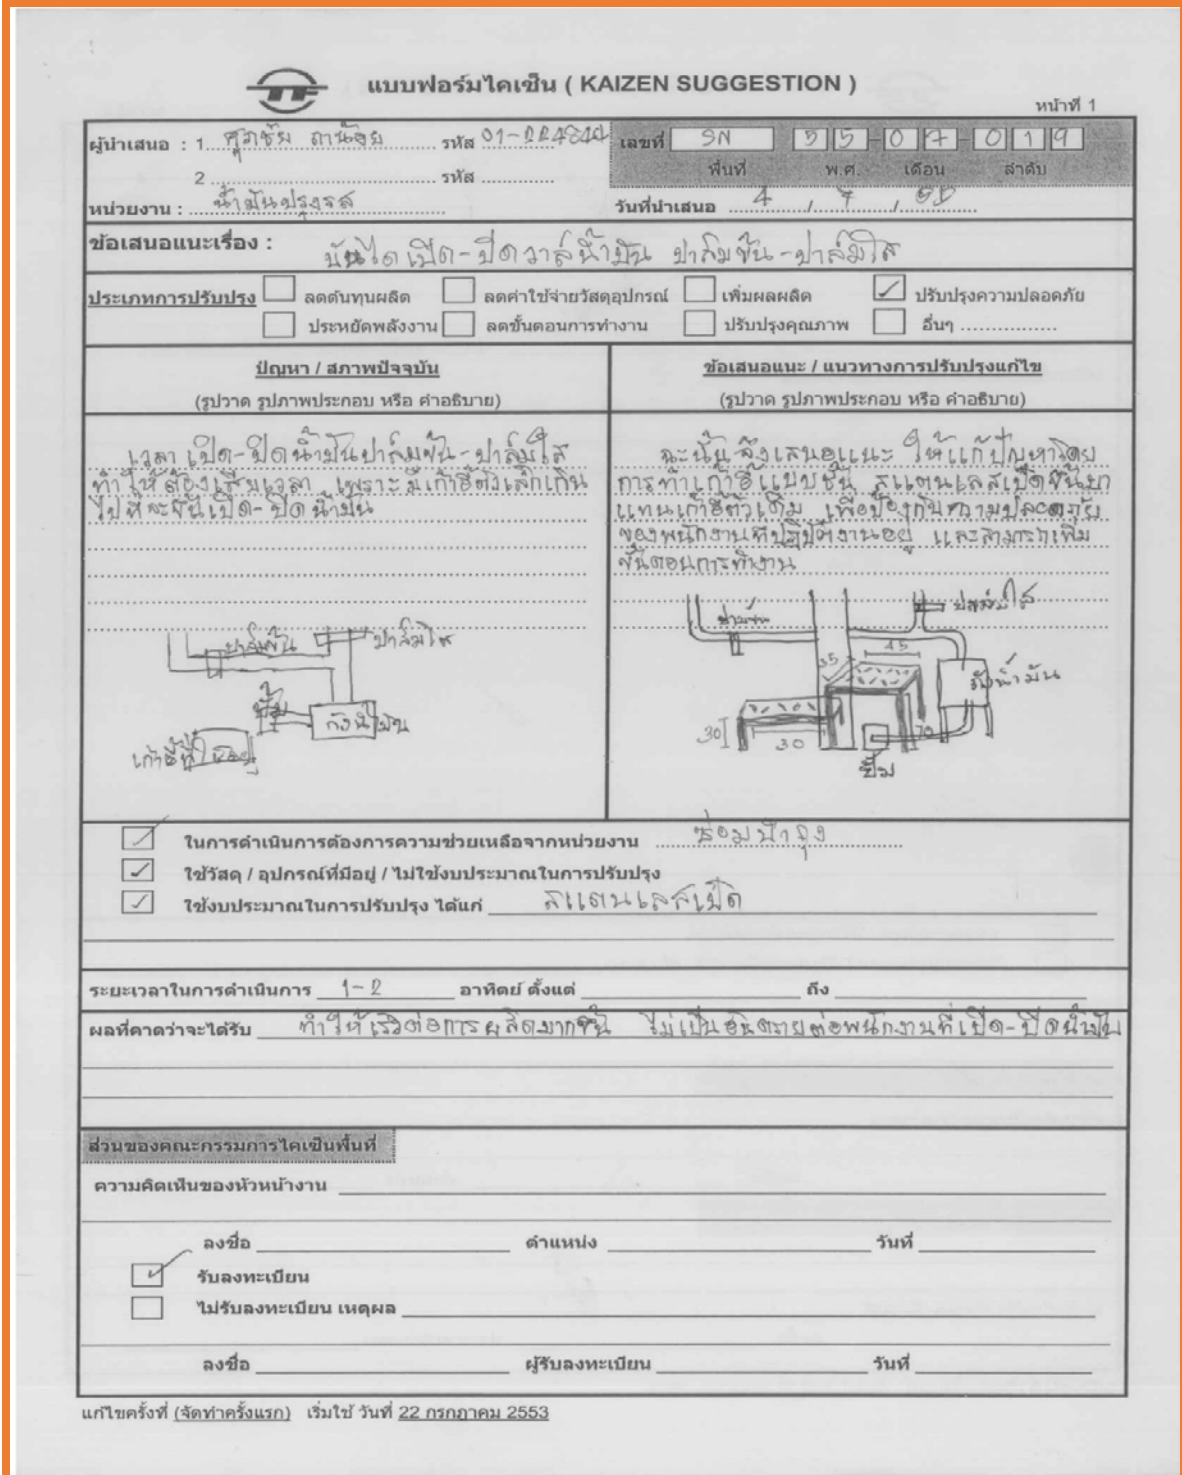 แบบฟอร์มไคเซ็น ( KAIZEN SUGGESTION )
หน้าที่ 1
ผู้นำเสนอ : 1. ศุภชัย รหัส 01-
เลขที่ SN 55-07-019
2 รหัส
พื้นที่ พ.ศ. เดือน ลำดับ
หน่วยงาน : น้ำมันปรุงรส
วันที่นำเสนอ 4 / 7 / 55
ข้อเสนอแนะเรื่อง : บันไดเปิด-ปิดวาล์น้ำมัน ปาล์มข้น-ปาล์มใส
ประเภทการปรับปรุง ลดต้นทุนผลิต ลดค่าใช้จ่ายวัสดุอุปกรณ์ เพิ่มผลผลิต ปรับปรุงความปลอดภัย
ประหยัดพลังงาน ลดขั้นตอนการทำงาน ปรับปรุงคุณภาพ อื่นๆ
ปัญหา / สภาพปัจจุบัน
(รูปวาด รูปภาพประกอบ หรือ คำอธิบาย)
เวลา เปิด-ปิดน้ำมันปาล์มข้น-ปาล์มใส
ทำให้ต้องเสียเวลา เพราะมีเก้าอี้ตัวเล็กเกิน
ไปที่จะขึ้นเปิด-ปิดน้ำมัน
ปาล์มข้น ปาล์มใส
ปั๊ม
ถังน้ำมัน
เก้าอี้ที่ใช้อยู่
ข้อเสนอแนะ / แนวทางการปรับปรุงแก้ไข
(รูปวาด รูปภาพประกอบ หรือ คำอธิบาย)
ฉะนั้นจึงเสนอแนะ ให้แก้ปัญหาโดย
การทำเก้าอี้แบบชั้น สแตนเลสเป็ดขึ้นมา
แทนเก้าอี้ตัวเดิม เพื่อป้องกันความปลอดภัย
ของพนักงานที่ปฏิบัติงานอยู่ และสามารถเพิ่ม
ขั้นตอนการทำงาน
ปาล์มใส
35 45
ถังน้ำมัน
30 30 70
ปั๊ม
ในการดำเนินการต้องการความช่วยเหลือจากหน่วยงาน ซ่อมบำรุง
ใช้วัสดุ / อุปกรณ์ที่มีอยู่ / ไม่ใช้งบประมาณในการปรับปรุง
ใช้งบประมาณในการปรับปรุง ได้แก่ สแตนเลสเป็ด
ระยะเวลาในการดำเนินการ 1-2 อาทิตย์ ตั้งแต่ ถึง
ผลที่คาดว่าจะได้รับ ทำให้เร็วต่อการผลิตมากขึ้น ไม่เป็นอันตรายต่อพนักงานที่เปิด-ปิดน้ำมัน
ส่วนของคณะกรรมการไคเซ็นพื้นที่
ความคิดเห็นของหัวหน้างาน
ลงชื่อ ตำแหน่ง วันที่
รับลงทะเบียน
ไม่รับลงทะเบียน เหตุผล
ลงชื่อ ผู้รับลงทะเบียน วันที่
แก้ไขครั้งที่ (จัดทำครั้งแรก) เริ่มใช้ วันที่ 22 กรกฎาคม 2553